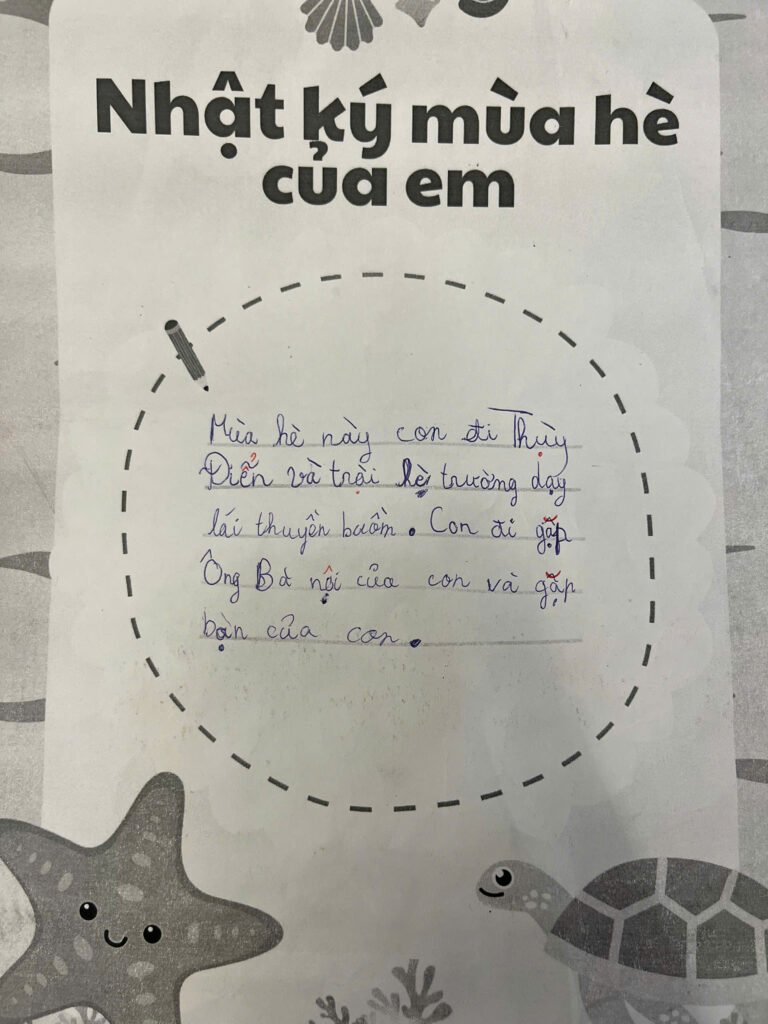 Nhật ký mùa hè
của em
Mùa hè này con đi Thụy
Điển và trại hè trường dạy
lái thuyền buồm. Con đi gặp
Ông Bà nội của con và gặp
bạn của con.